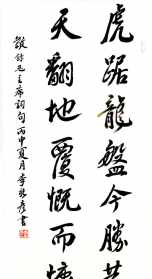 虎踞龍盤今勝昔
天翻地覆慨而慷
錄毛主席詞句丙申夏月李書